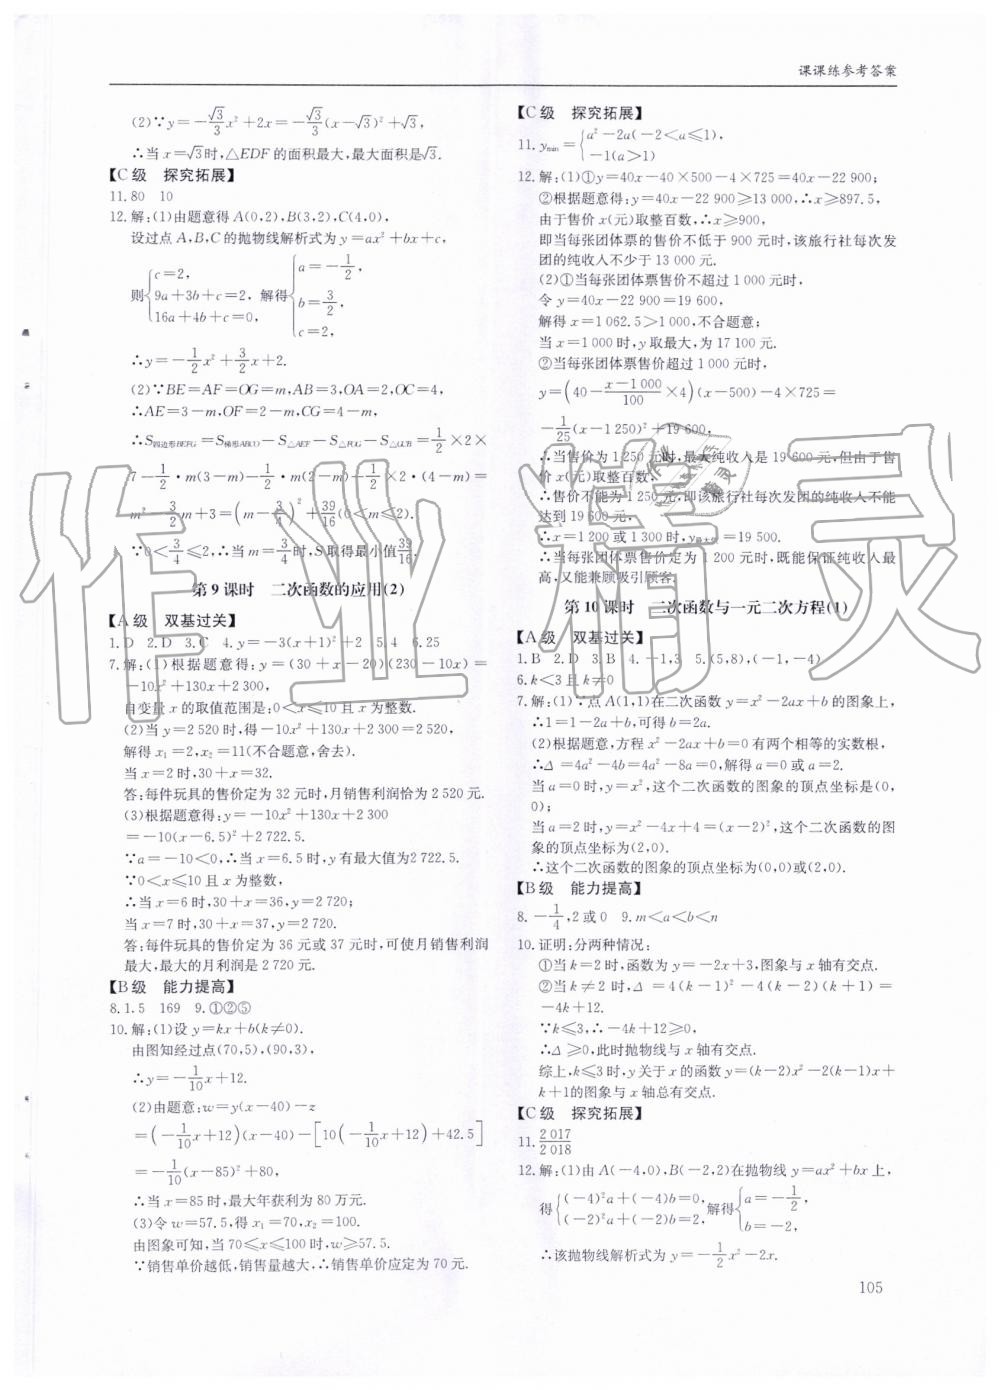 课课练参考答案
(2)∵y=-√3/3x²+2x=-√3/3(x-√3)²+√3,
∴当x=√3时,△EDF的面积最大,最大面积是√3.
【C级 探究拓展】
11.80 10
12.解:(1)由题意得A(0,2),B(3,2),C(4,0),
设过点A,B,C的抛物线解析式为y=ax²+bx+c,
则{c=2, 9a+3b+c=2, 16a+4b+c=0, 解得{a=-1/2, b=3/2, c=2,
∴y=-1/2x²+3/2x+2.
(2)∵BE=AF=OG=m,AB=3,OA=2,OC=4,
∴AE=3-m,OF=2-m,CG=4-m,
∴S四边形BEFG=S梯形ABCO-S△AEF-S△FOG-S△GCB=1/2×2×
7-1/2·m(3-m)-1/2·m(2-m)-1/2×2·(4-m)=
m²-3/2m+3=(m-3/4)²+39/16(0<m≤2).
∵0<3/4≤2,∴当m=3/4时,S取得最小值39/16.
第9课时 二次函数的应用(2)
【A级 双基过关】
1.D 2.D 3.C 4.y=-3(x+1)²+2 5.4 6.25
7.解:(1)根据题意得:y=(30+x-20)(230-10x)=
-10x²+130x+2 300,
自变量x的取值范围是:0<x≤10且x为整数.
(2)当y=2 520时,得-10x²+130x+2 300=2 520,
解得x₁=2,x₂=11(不合题意,舍去).
当x=2时,30+x=32.
答:每件玩具的售价定为32元时,月销售利润恰为2 520元.
(3)根据题意得:y=-10x²+130x+2 300
=-10(x-6.5)²+2 722.5.
∵a=-10<0,∴当x=6.5时,y有最大值为2 722.5.
∵0<x≤10且x为整数,
∴当x=6时,30+x=36,y=2 720;
当x=7时,30+x=37,y=2 720.
答:每件玩具的售价定为36元或37元时,可使月销售利润
最大,最大的月利润是2 720元.
【B级 能力提高】
8.1.5 169 9.①②⑤
10.解:(1)设y=kx+b(k≠0).
由图知经过点(70,5),(90,3),
∴y=-1/10x+12.
(2)由题意:w=y(x-40)-z
=(-1/10x+12)(x-40)-[10(-1/10x+12)+42.5]
=-1/10(x-85)²+80,
∴当x=85时,最大年获利为80万元.
(3)令w=57.5,得x₁=70,x₂=100.
由图象可知,当70≤x≤100时,w≥57.5.
∵销售单价越低,销售量越大,∴销售单价应定为70元.
【C级 探究拓展】
11.ymin={a²-2a(-2<a≤1), -1(a>1)
12.解:(1)①y=40x-40×500-4×725=40x-22 900;
②根据题意得:y=40x-22 900≥13 000,∴x≥897.5,
由于售价x(元)取整百数,∴x≥900,
即当每张团体票的售价不低于900元时,该旅行社每次发
团的纯收入不少于13 000元.
(2)①当每张团体票售价不超过1 000元时,
令y=40x-22 900=19 600,
解得x=1 062.5>1 000,不合题意;
当x=1 000时,y取最大,为17 100元.
②当每张团体票售价超过1 000元时,
y=(40-x-1 000/100×4)(x-500)-4×725=
-1/25(x-1 250)²+19 600,
∴当售价为1 250元时,最大纯收入是19 600元,但由于售
价x(元)取整百数,
∴售价不能为1 250元,即该旅行社每次发团的纯收入不能
达到19 600元,
∴x=1 200或1 300时,y最大值=19 500.
∴当每张团体票售价定为1 200元时,既能保证纯收入最
高,又能兼顾吸引顾客.
第10课时 二次函数与一元二次方程(1)
【A级 双基过关】
1.B 2.D 3.B 4.-1,3 5.(5,8),(-1,-4)
6.k<3且k≠0
7.解:(1)∵点A(1,1)在二次函数y=x²-2ax+b的图象上,
∴1=1-2a+b,可得b=2a.
(2)根据题意,方程x²-2ax+b=0有两个相等的实数根,
∴Δ=4a²-4b=4a²-8a=0,解得a=0或a=2.
当a=0时,y=x²,这个二次函数的图象的顶点坐标是(0,
0);
当a=2时,y=x²-4x+4=(x-2)²,这个二次函数的图
象的顶点坐标为(2,0).
∴这个二次函数的图象的顶点坐标为(0,0)或(2,0).
【B级 能力提高】
8.-1/4,2或0 9.m<a<b<n
10.证明:分两种情况:
①当k=2时,函数为y=-2x+3,图象与x轴有交点.
②当k≠2时,Δ=4(k-1)²-4(k-2)(k+1)=
-4k+12.
∵k≤3,∴-4k+12≥0,
∴Δ≥0,此时抛物线与x轴有交点.
综上,k≤3时,y关于x的函数y=(k-2)x²-2(k-1)x+
k+1的图象与x轴总有交点.
【C级 探究拓展】
11.2 017/2 018
12.解:(1)由A(-4,0),B(-2,2)在抛物线y=ax²+bx上,
得{(-4)²a+(-4)b=0, (-2)²a+(-2)b=2, 解得{a=-1/2, b=-2,
∴该抛物线解析式为y=-1/2x²-2x.
105
作业精灵